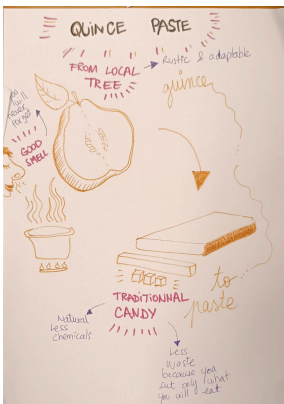 QUINCE PASTE
FROM LOCAL
TREE
Rustic & adaptable
quince
will
never
forget
GOOD
SMELL
to
paste
TRADITIONNAL
CANDY
Natural
Less
Chemicals
Less
Waste
because you
cut only what
you will eat